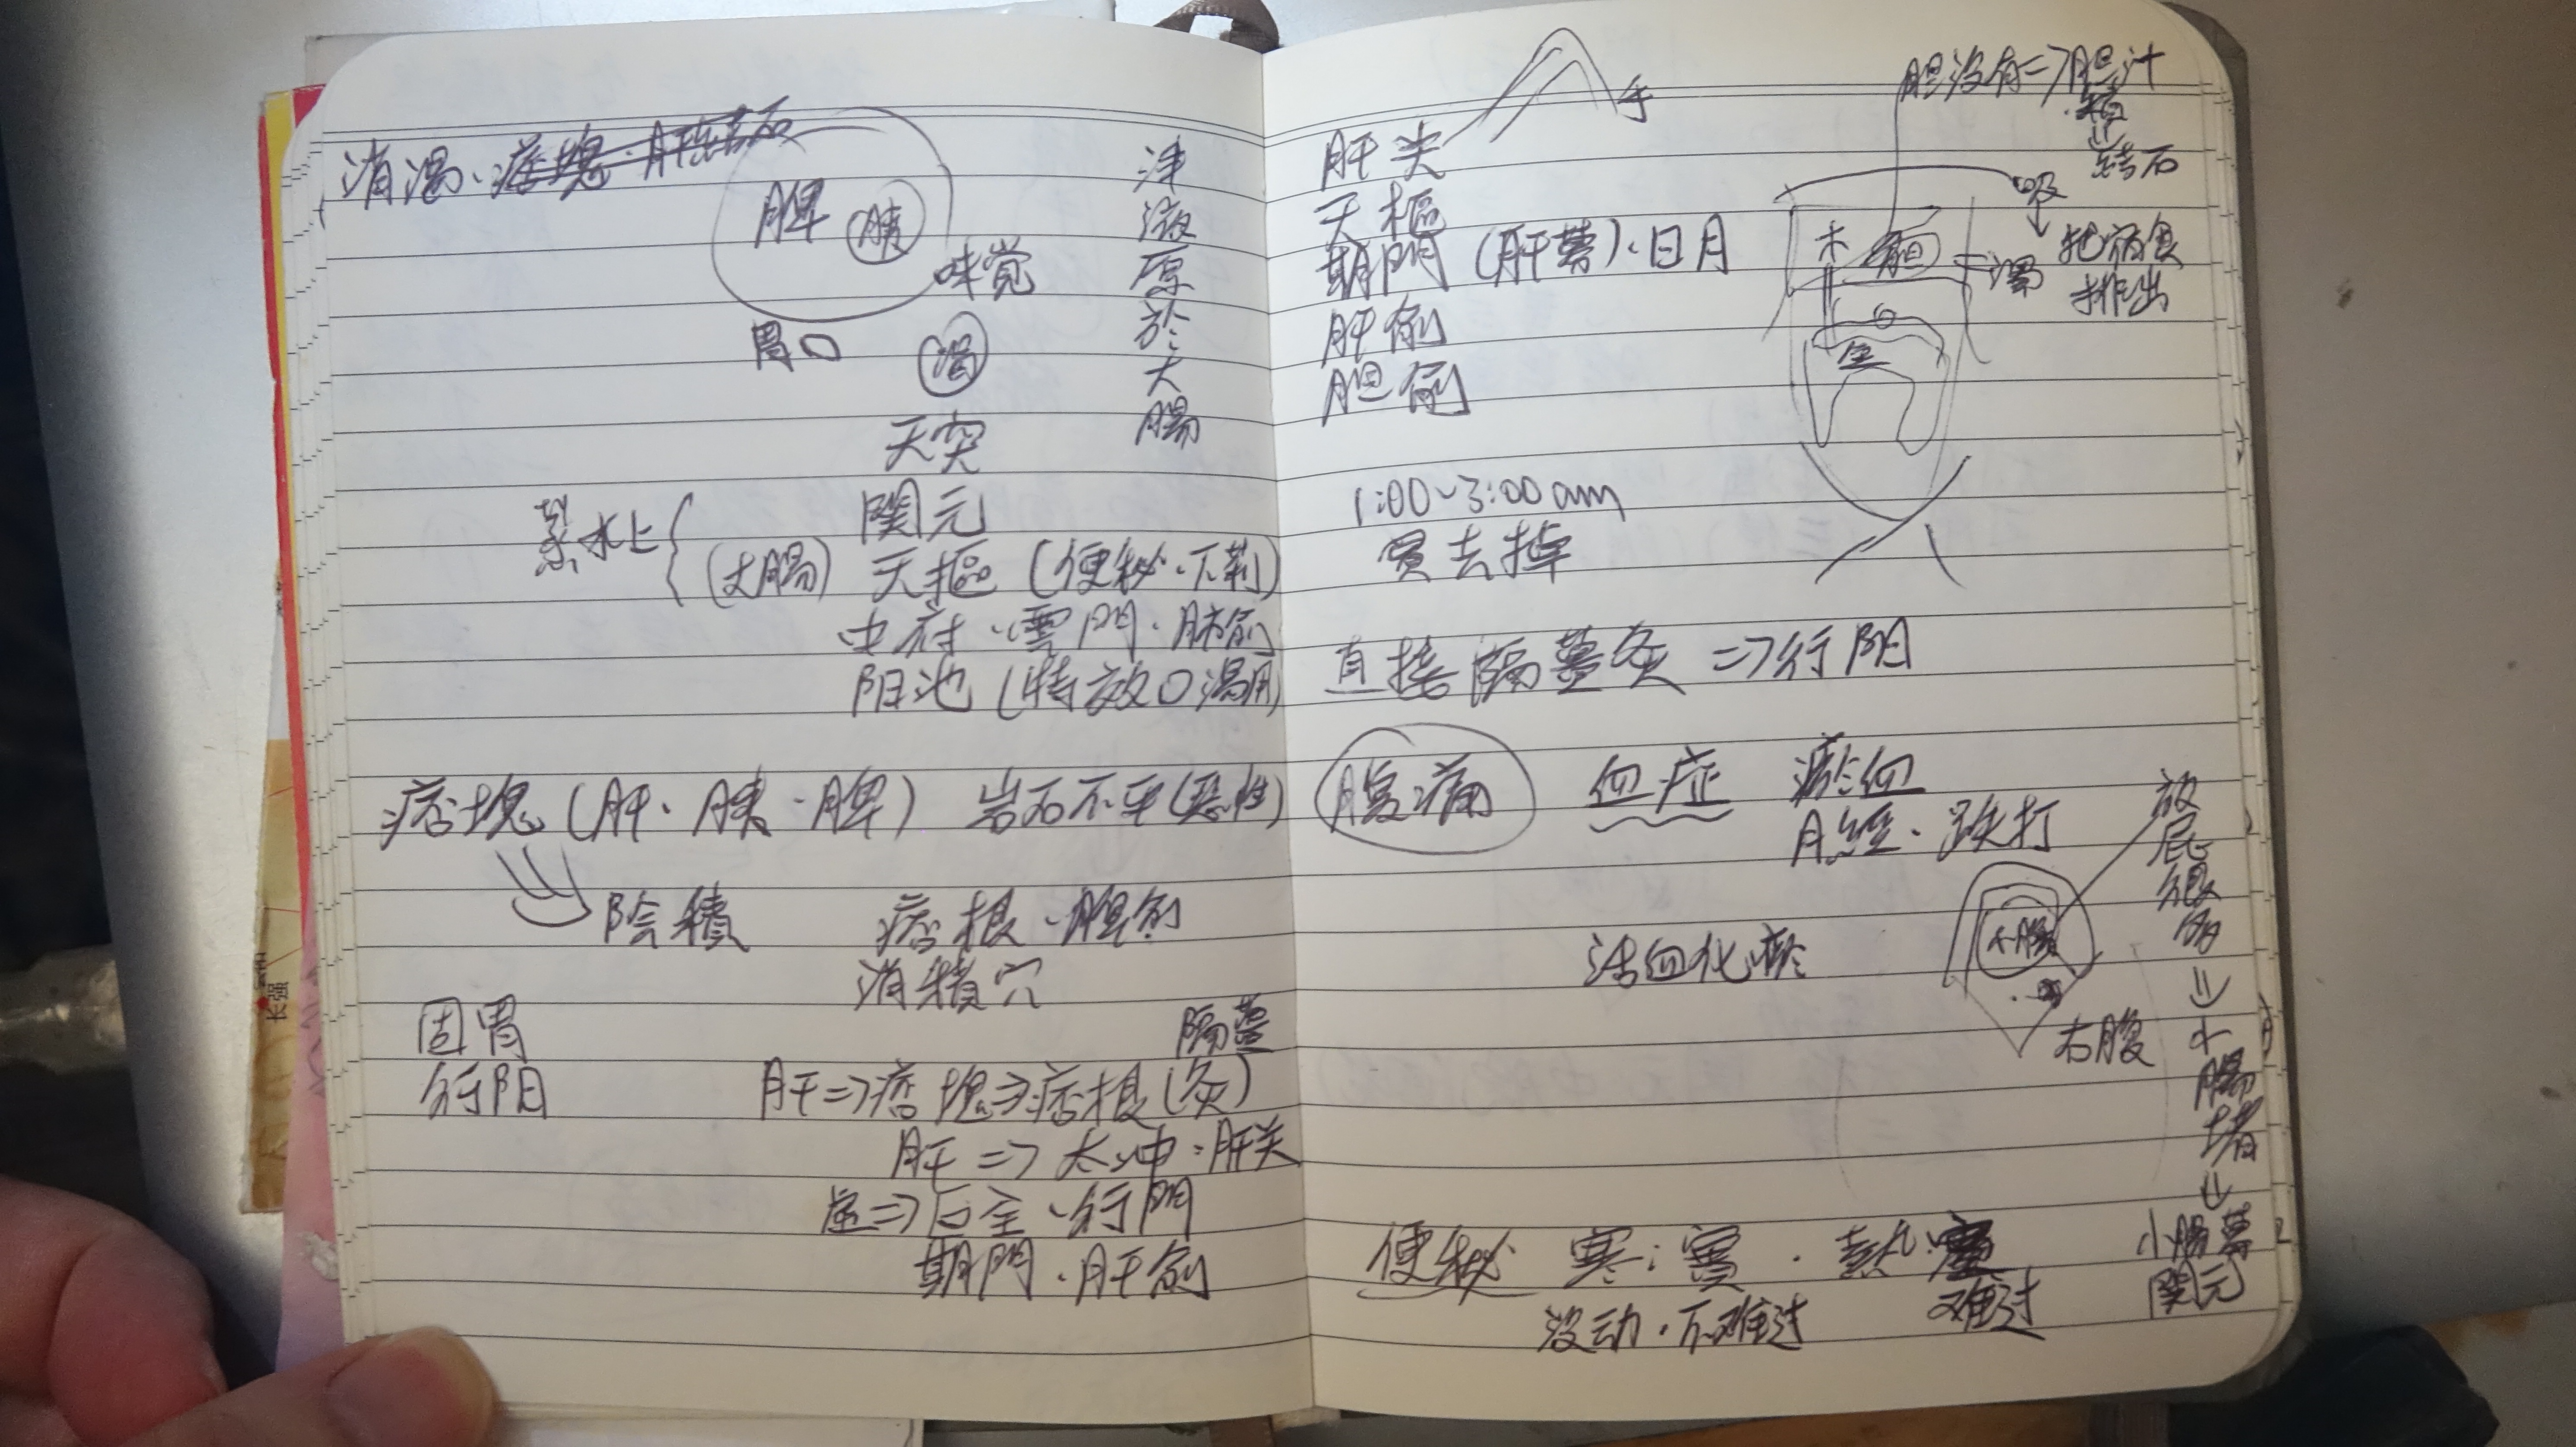 消渴、痞塊·肝結石
脾 胰
味覚
胃口 渴
津液原於大腸
天突
蒸水上
関元
(大腸) 天樞 (便秘·下利)
中府·雲門·肺俞
阳池 (特效口渴用)
痞塊 (肝·胰·脾) 岩石不平 (惡性)
陰積 痞根·脾俞
消積穴
固胃
行阳
隔薑
肝⇒痞塊⇒痞根 (灸)
肝⇒太冲·肝关
虛⇒巨全·行間
期門·肝俞
手
肝炎
天樞
期門 (肝募)·日月
肝俞
胆俞
胆没有⇒胆汁
結石
吸
木 胆
濁
把宿食
排出
金
1:00~3:00am
買去掉
直接隔薑灸⇒行阳
腹痛 血症 瘀血
月經·跌打
活血化瘀
小腸
右腹
放屁很多⇒小腸堵⇒
小腸募
関元
便秘 寒:實·熱:實
没动·不难过 难过
长强